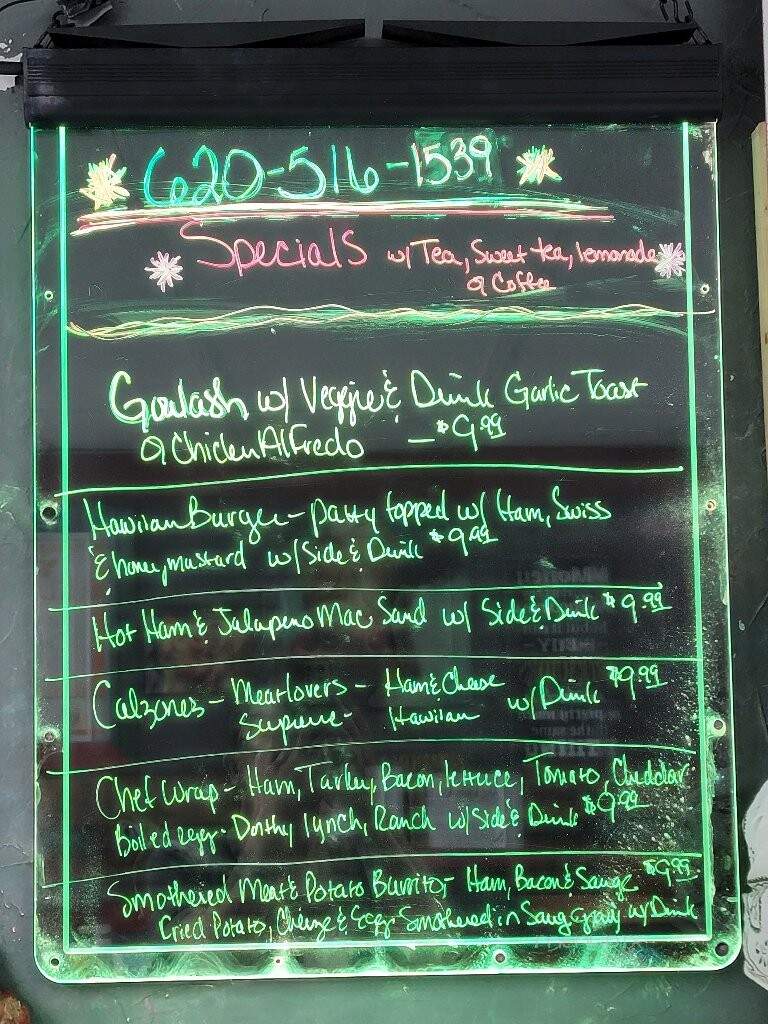 620-516-1539
Specials w/ Tea, Sweet tea, lemonade
Coffee
Goulash w/ Veggie & Drink Garlic Toast
Chicken Alfredo - $9.99
Hawiian Burger - patty topped w/ Ham, Swiss
& honey mustard w/ Side & Drink $9.99
Hot Ham & Jalapeno Mac Sand w/ Side & Drink $9.99
Calzones - Meatlovers - Ham & Cheese w/ Drink $9.99
Supreme - Hawiian
Chef wrap - Ham, Turkey, Bacon, lettuce, Tomato, Cheddar
Boiled eggs - Dorthy lynch, Ranch w/ Side & Drink $9.99
Smothered Meat & Potato Burrito - Ham, Bacon & Sausage $9.99
Potato, Cheese & Eggs Smothered in gravy w/ Drink